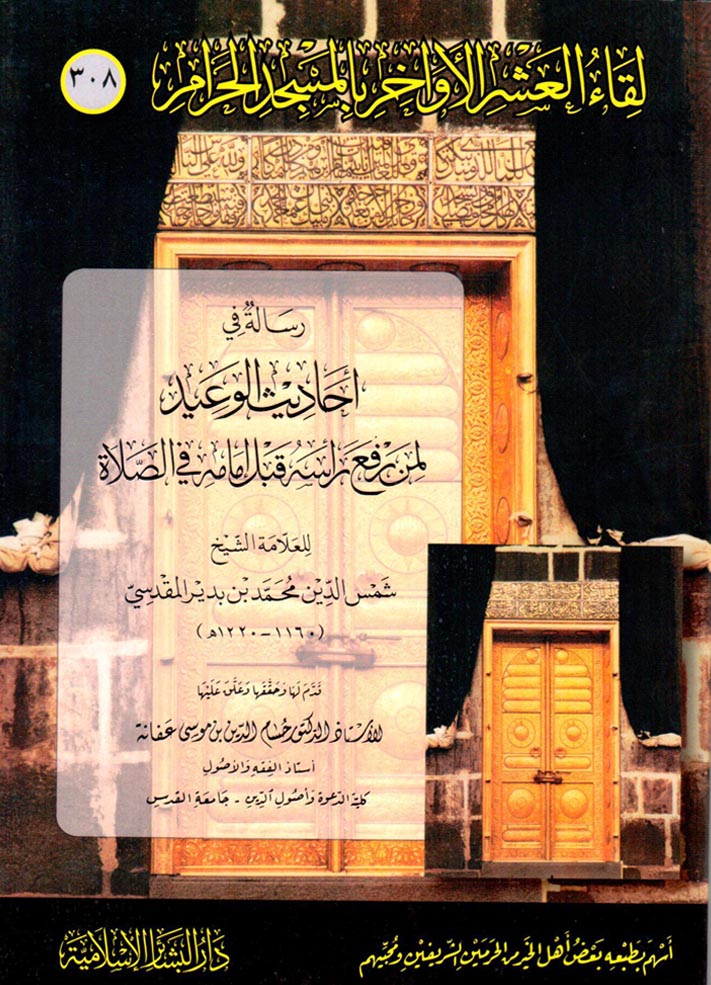 لِقَاءُ العَشْرِ الأَوَاخِرِ بِالمَسْجِدِ الحَرَامِ
٣٠٨
رِسَالَةٌ فِي
أَحَادِيثِ الوَعِيدِ
لِمَنْ رَفَعَ رَأْسَهُ قَبْلَ إِمَامِهِ فِي الصَّلَاةِ
لِلعَلَّامَةِ الشَّيْخِ
شَمْسِ الدِّينِ مُحَمَّدِ بْنِ بُدَيْرٍ المَقْدِسِيِّ
(١١٦٠ - ١٢٢٠ هـ)
قَدَّمَ لَهَا وَحَقَّقَهَا وَعَلَّقَ عَلَيْهَا
الأستاذ الدكتور حسام الدين بن موسى عفانة
أستاذ الفقه والأصول
كلية الدعوة وأصول الدين - جامعة القدس
أَسْهَمَ بِطَبْعِهِ بَعْضُ أَهْلِ الخَيْرِ مِنَ الحَرَمَيْنِ الشَّرِيفَيْنِ وَمُحِبِّيهِمْ
دَارُ البَشَائِرِ الإِسْلَامِيَّةِ